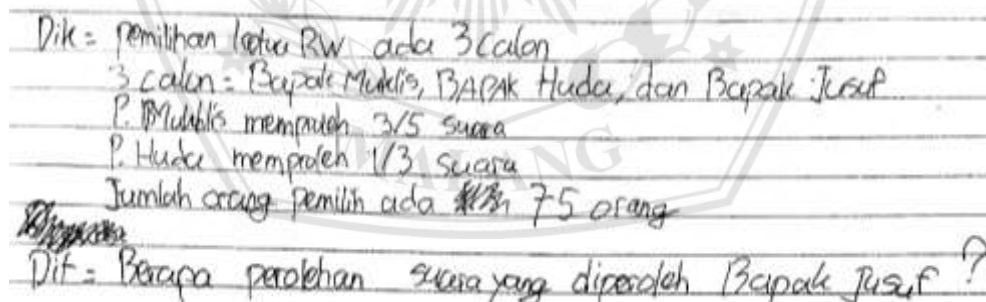 Dik = pemilihan ketua RW ada 3 calon
3 calon = Bapak Muklis, BAPAK Huda, dan Bapak Jusuf
P. Mukhlis memproleh 3/5 suara
P. Huda memproleh 1/3 suara
Jumlah orang pemilih ada 75 orang
MALANG
Dit = Berapa perolehan suara yang diperoleh Bapak Jusuf ?